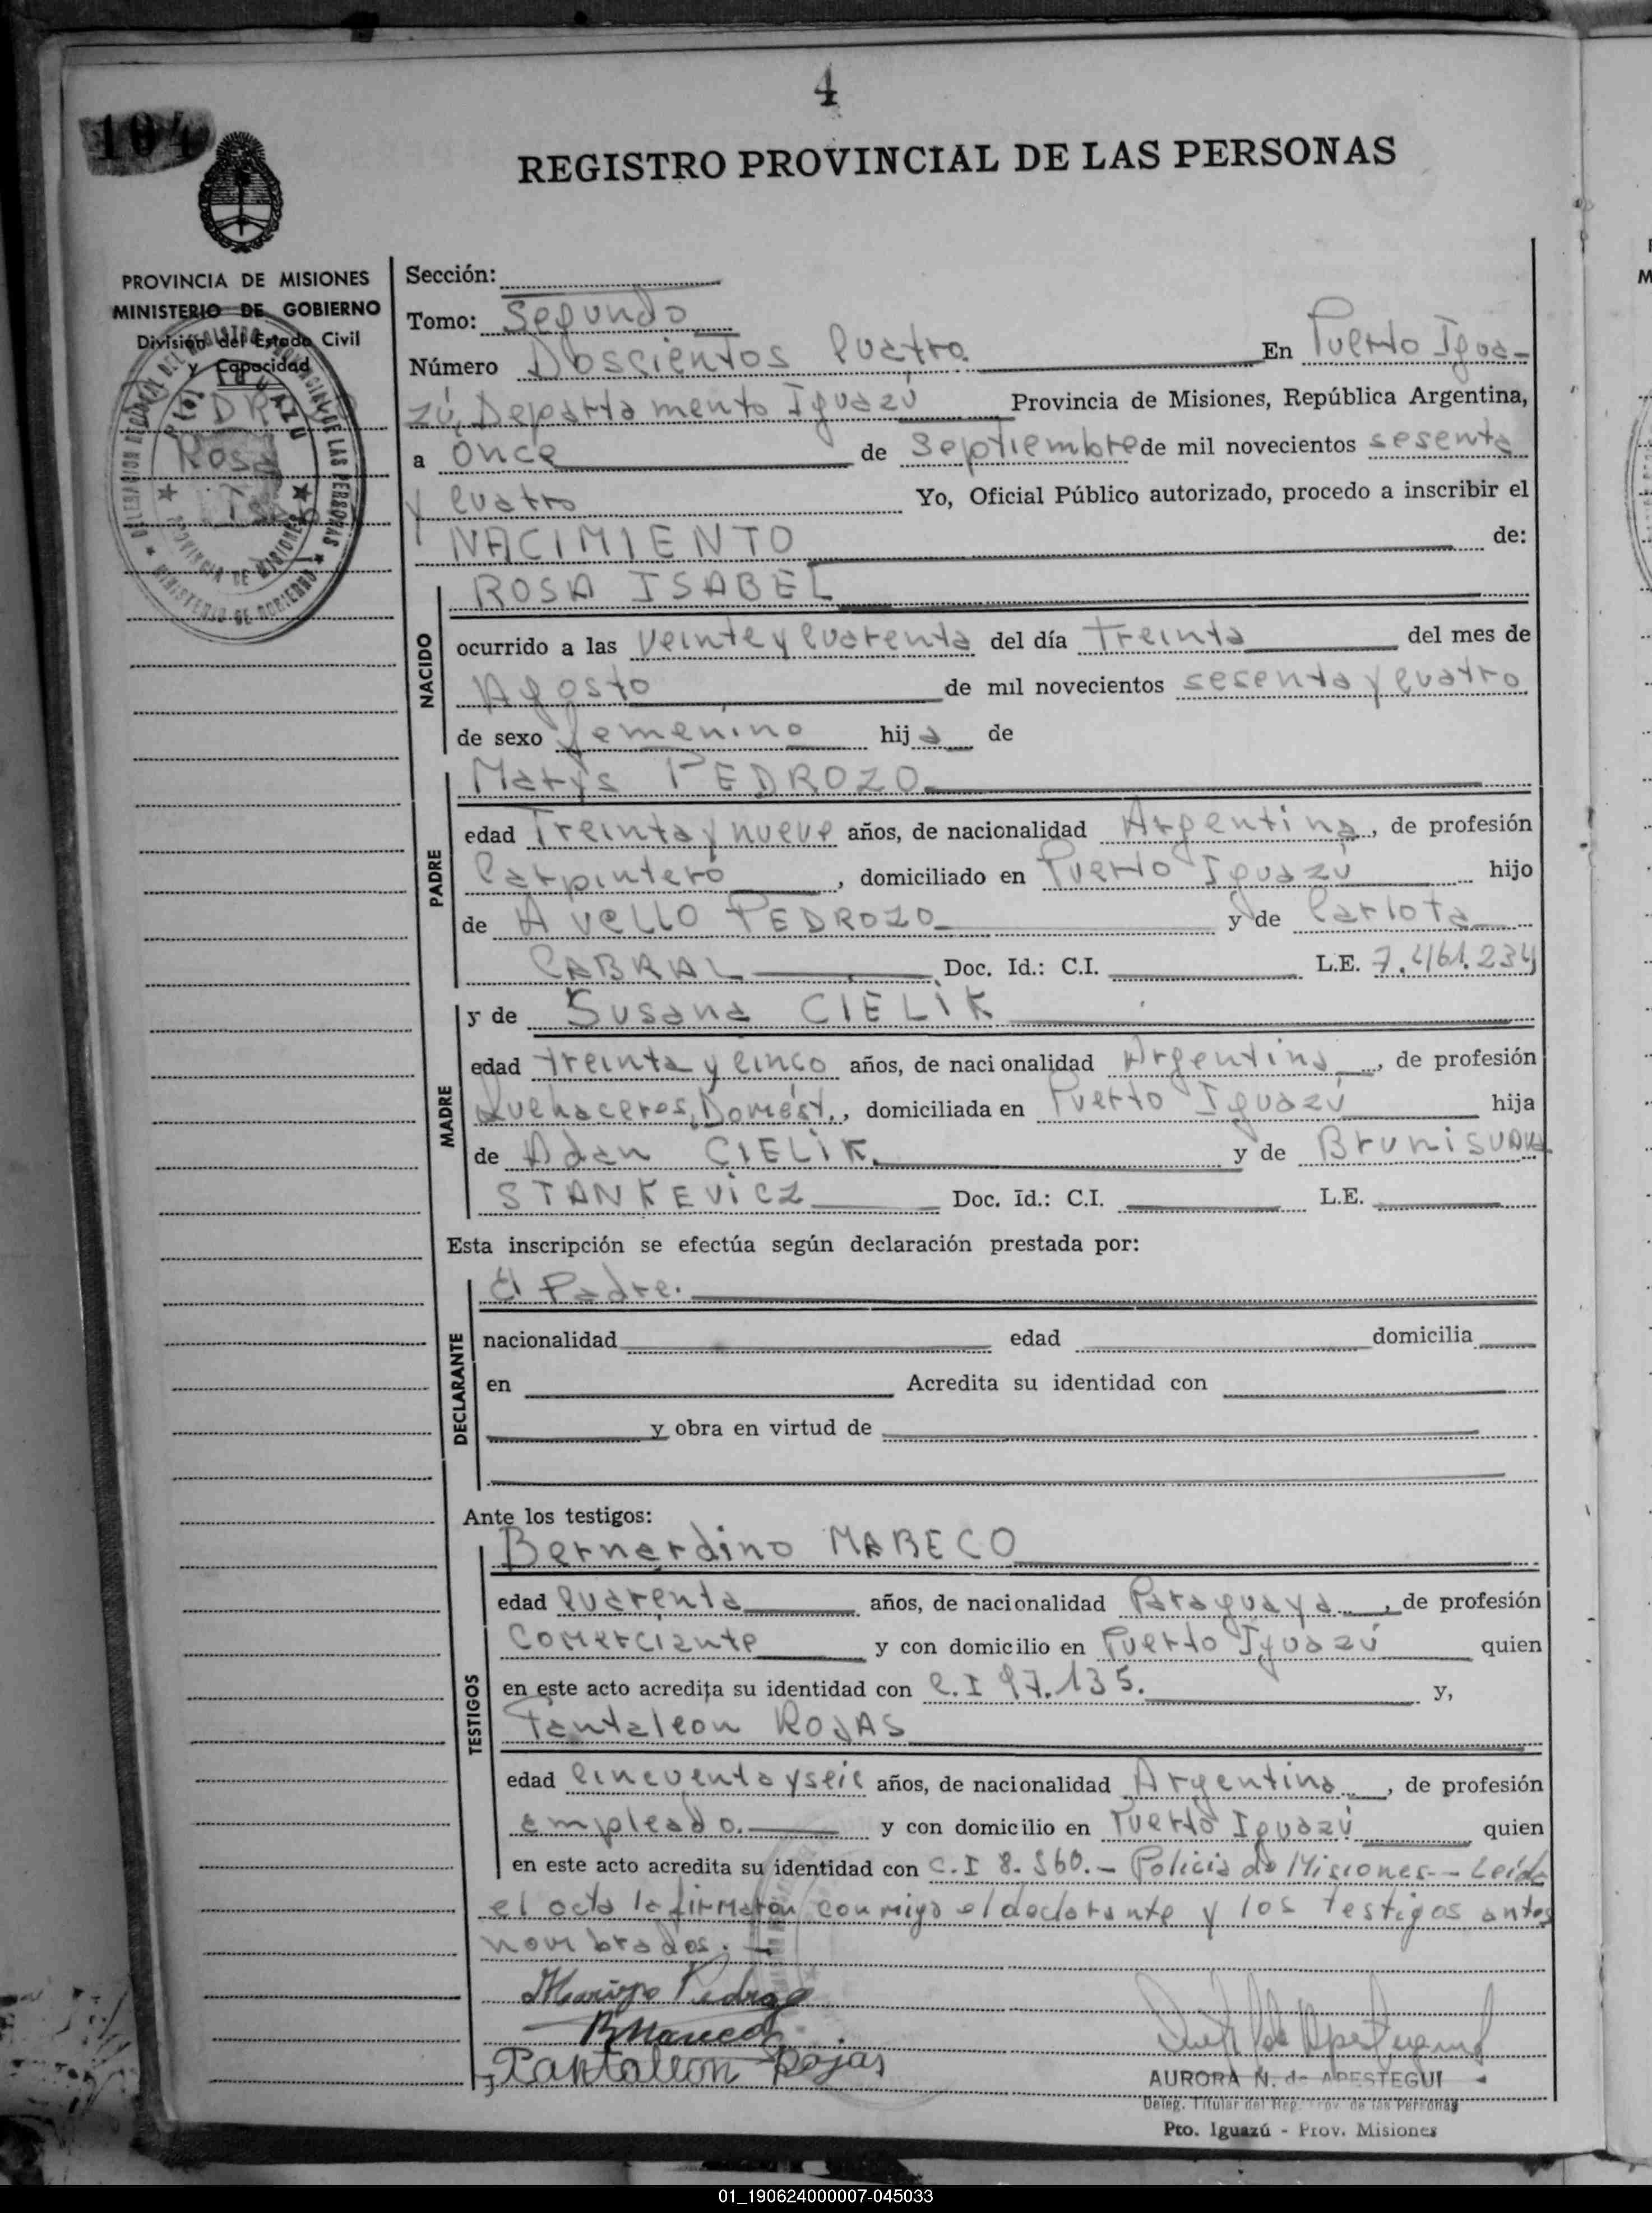 4
104
REGISTRO PROVINCIAL DE LAS PERSONAS
PROVINCIA DE MISIONES
MINISTERIO DE GOBIERNO
División del Estado Civil
y Capacidad
Rosa
Isabel
Sección:
Tomo: Segundo
Número Doscientos Cuatro. En Puerto Igua-
zú, Departamento Iguazú Provincia de Misiones, República Argentina,
a Once de Septiembre de mil novecientos sesenta
y cuatro Yo, Oficial Público autorizado, procedo a inscribir el
NACIMIENTO de:
ROSA ISABEL
NACIDO
ocurrido a las veinte y cuarenta del día Treinta del mes de
Agosto de mil novecientos sesenta y cuatro
de sexo femenino hija de
Marys PEDROZO
PADRE
edad Treinta y nueve años, de nacionalidad Argentina, de profesión
Carpintero, domiciliado en Puerto Iguazú hijo
de Avello PEDROZO y de Carlota
CABRAL Doc. Id.: C.I. L.E. 7.461.234
MADRE
y de Susana CIELIK
edad treinta y cinco años, de nacionalidad Argentina, de profesión
Quehaceres Domést., domiciliada en Puerto Iguazú hija
de Adan CIELIK. y de
STANKEVICZ Doc. Id.: C.I. L.E.
Esta inscripción se efectúa según declaración prestada por:
DECLARANTE
El Padre.
nacionalidad edad domicilia
en Acredita su identidad con
y obra en virtud de
Ante los testigos:
TESTIGOS
Bernardino MARECO
edad cuarenta años, de nacionalidad Paraguaya, de profesión
Comerciante y con domicilio en Puerto Iguazú quien
en este acto acredita su identidad con C.I 97.135. y,
Pantaleon ROJAS
edad cincuenta y seis años, de nacionalidad Argentina, de profesión
empleado. y con domicilio en Puerto Iguazú quien
en este acto acredita su identidad con C.I 8.560.- Policia de Misiones-- Leída
el acta la firmaron conmigo el declarante y los testigos antes
nombrados.-
Pedrozo
BMareco
Pantaleon Rojas
AURORA N. de APESTEGUI
Deleg. Titular del Reg. Prov. de las Personas
Pto. Iguazú - Prov. Misiones
01_190624000007-045033